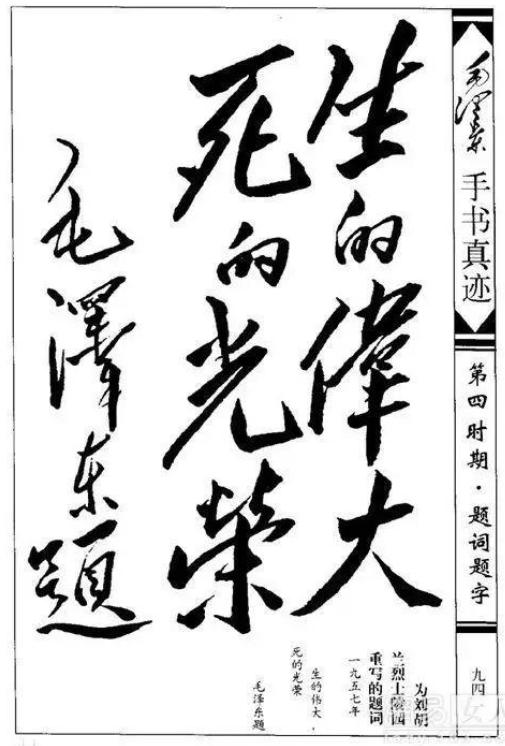 生的偉大
死的光榮
毛澤东題
毛泽东
手书真迹
第四时期·题词题字
九四
为刘胡
兰烈士陵园
重写的题词
一九五七年
生的伟大，
死的光荣
毛泽东题